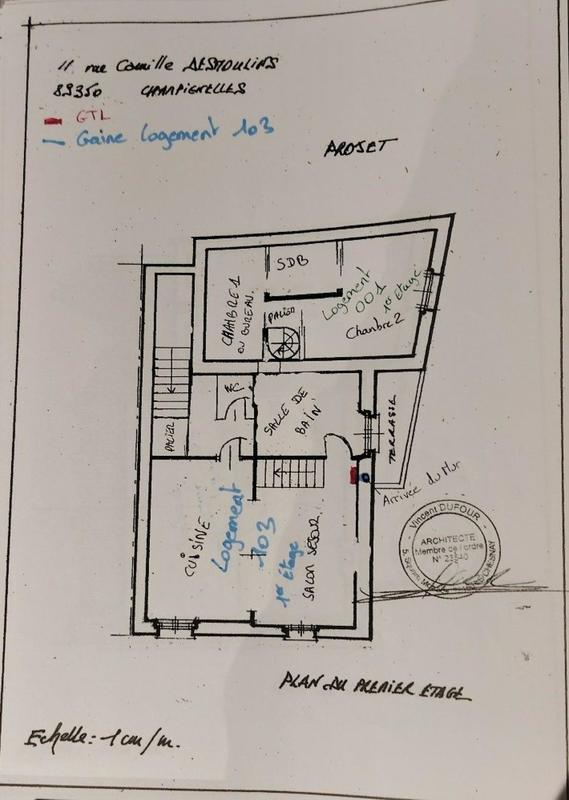 11 rue Camille DESMOULINS
89350 CHAMPIGNELLES
GTL
Gaine Logement 103
PROJET
SDB
CHAMBRE 1
OU BUREAU.
PALIER
Logement
001
1er Etage
Chambre 2
WC
PALIER
SALLE DE
BAIN
TERRASSE
Arrivée du Mur
CUISINE
Logement
103
1er Etage
SALON SEJOUR
Vincent DUFOUR
ARCHITECTE
Membre de l'ordre
PLAN DU PREMIER ETAGE
Echelle: 1cm/m.